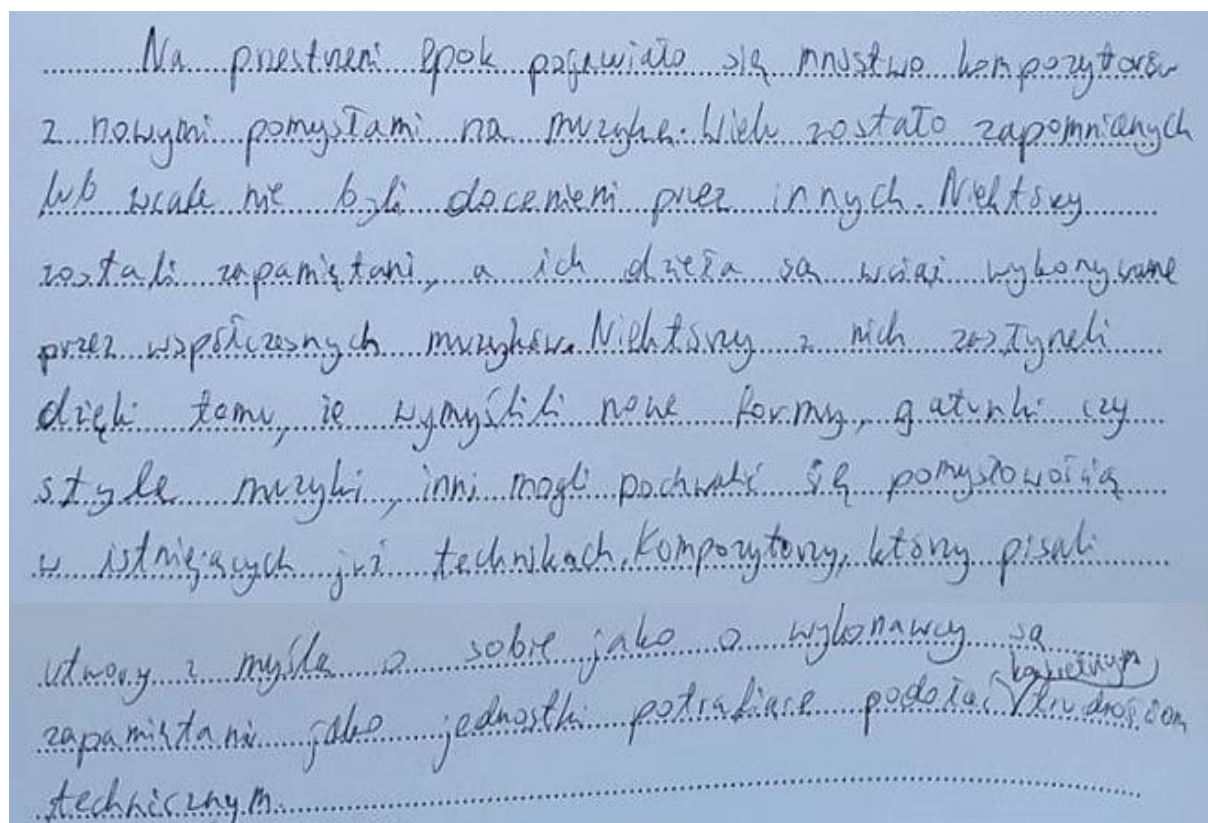 Na przestrzeni epok pojawiało się mnóstwo kompozytorów
z nowymi pomysłami na muzykę. Wielu zostało zapomnianych
lub wcale nie byli docenieni przez innych. Niektórzy
zostali zapamiętani, a ich dzieła są wciąż wykonywane
przez współczesnych muzyków. Niektórzy z nich zasłyneli
dzięki temu, że wymyślili nowe formy, gatunki czy
style muzyki, inni mogli pochwalić się pomysłowością
w istniejących już technikach. Kompozytorzy, którzy pisali
utwory z myślą o sobie jako o wykonawcy są
zapamiętani jako jednostki potrafiące podołać trudnościom
technicznym